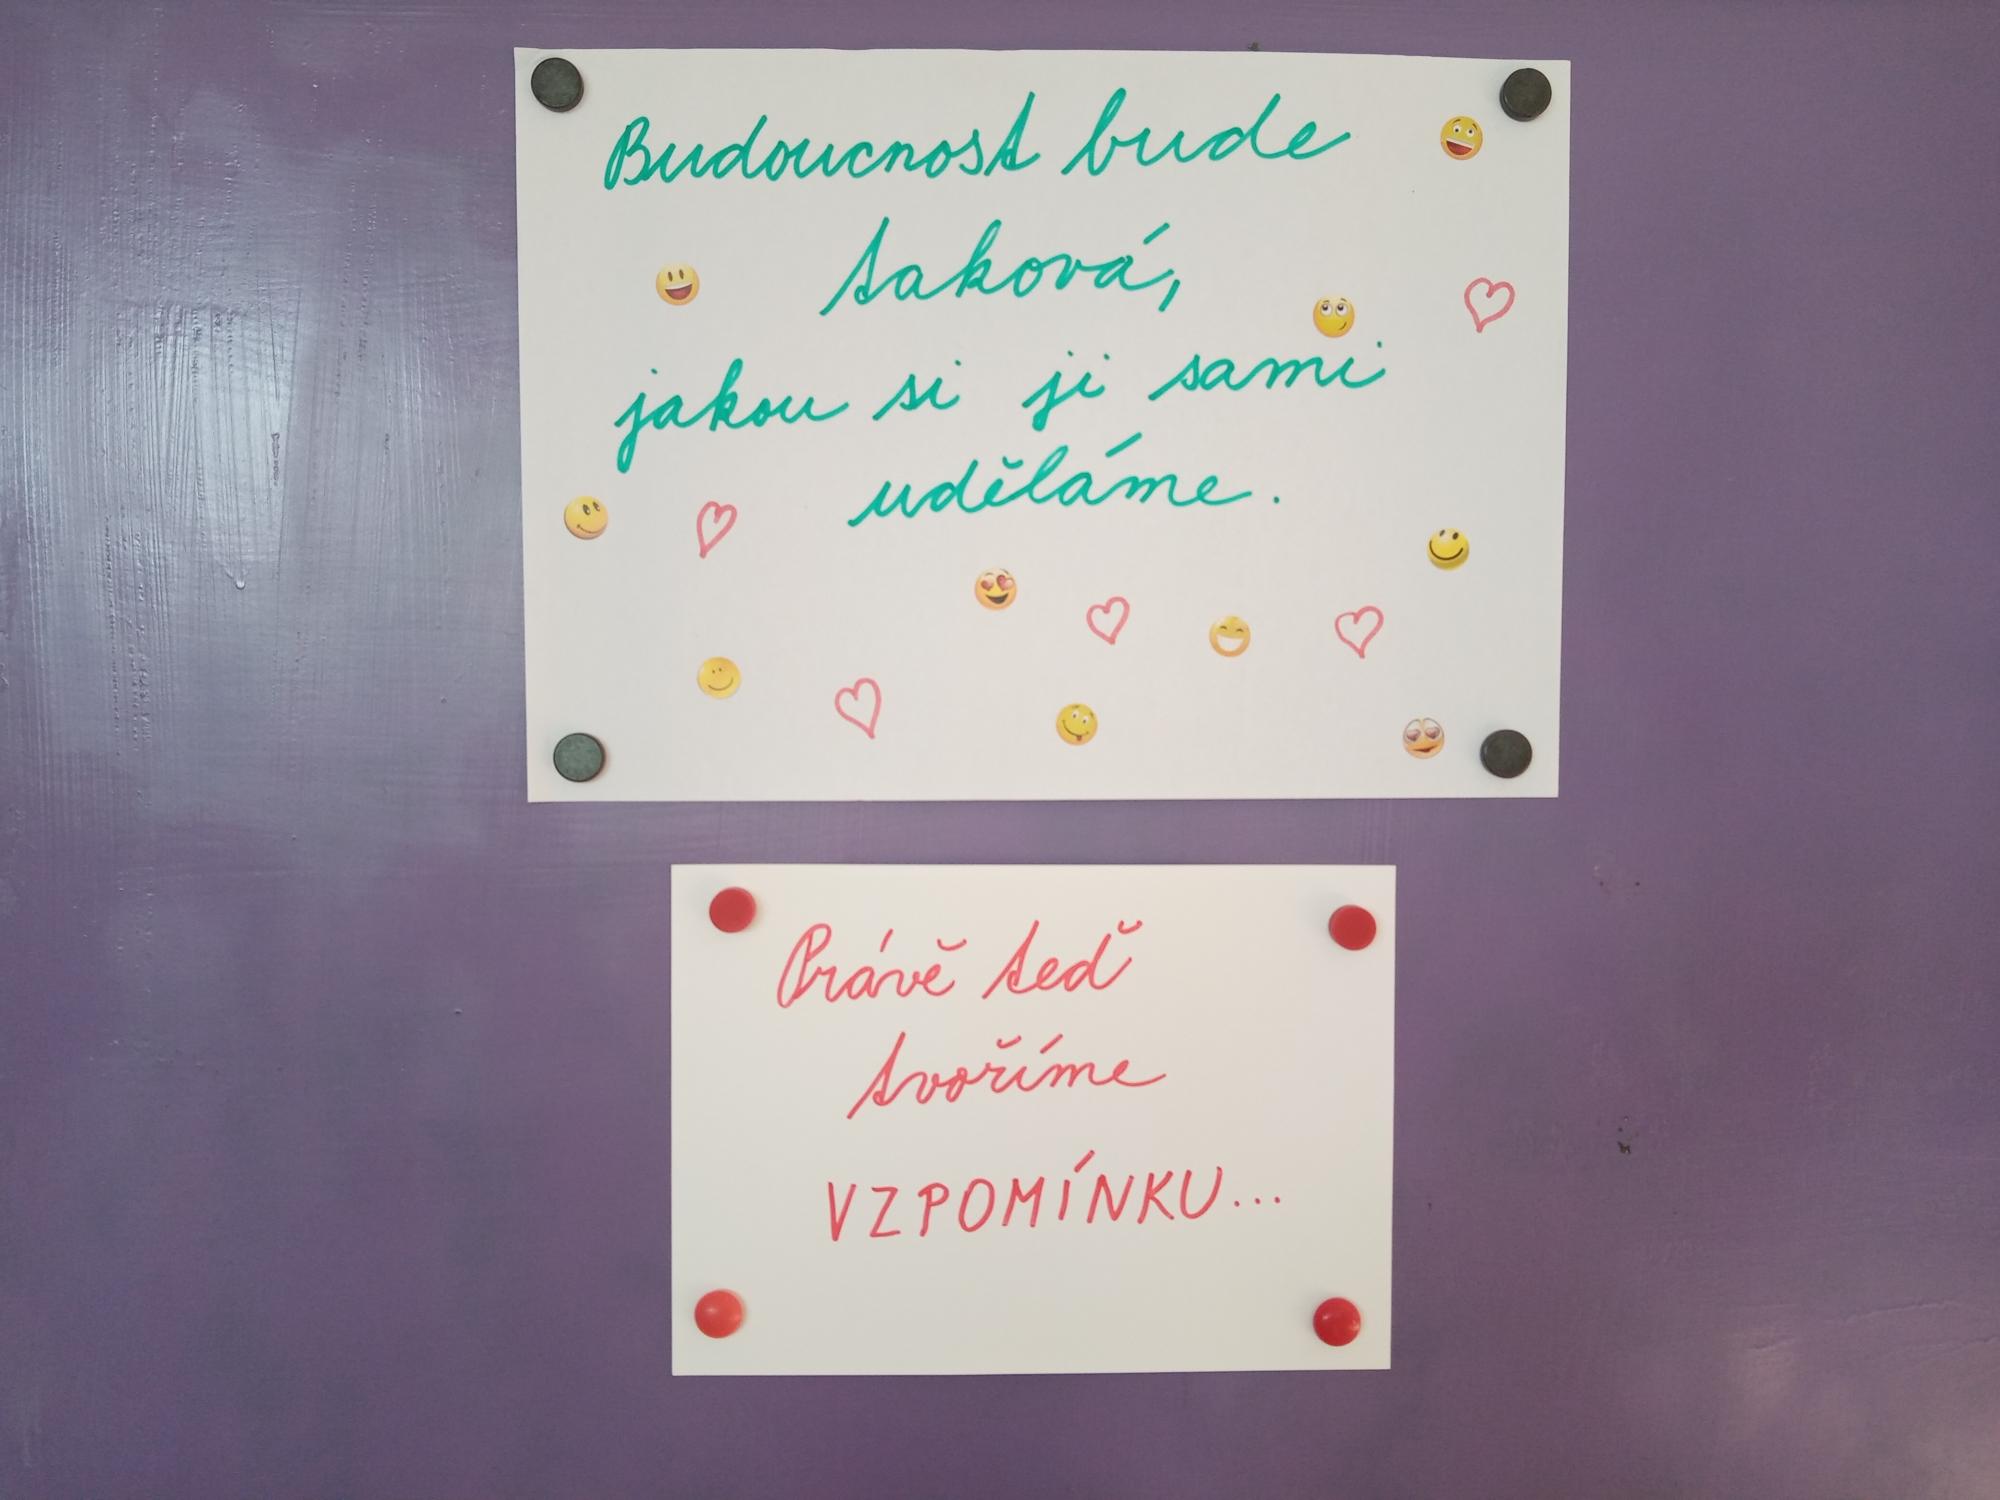 Budoucnost bude
taková,
jakou si ji sami
uděláme.
Právě teď
tvoříme
VZPOMÍNKU...